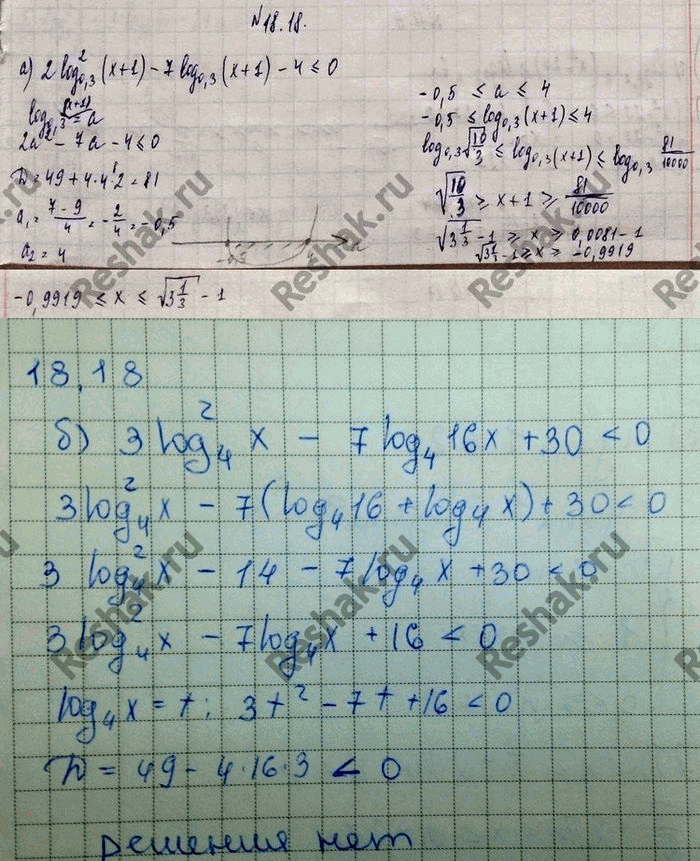 N18.18.
а) 2 log²₀,₃ (x+1) - 7 log₀,₃ (x+1) - 4 ≤ 0
log₀,₃ (x+1) = a
2a² - 7a - 4 ≤ 0
D = 49 + 4·4·2 = 81
a₁ = (7-9)/4 = -2/4 = -0,5
a₂ = 4
-0,5 a
-0,5 ≤ a ≤ 4
-0,5 ≤ log₀,₃ (x+1) ≤ 4
log₀,₃ √(10/3) ≤ log₀,₃ (x+1) ≤ log₀,₃ 81/10000
√(10/3) ≥ x+1 ≥ 81/10000
√(3 1/3) - 1 ≥ x ≥ 0,0081 - 1
√(3 1/3) - 1 ≥ x ≥ -0,9919
-0,9919 ≤ x ≤ √(3 1/3) - 1
18.18
б) 3 log²₄ x - 7 log₄ 16x + 30 < 0
3 log²₄ x - 7(log₄ 16 + log₄ x) + 30 < 0
3 log²₄ x - 14 - 7 log₄ x + 30 < 0
3 log²₄ x - 7 log₄ x + 16 < 0
log₄ x = t; 3t² - 7t + 16 < 0
D = 49 - 4·16·3 < 0
решения нет
Reshak.ru
Reshak.ru
Reshak.ru
Reshak.ru
Reshak.ru
Reshak.ru